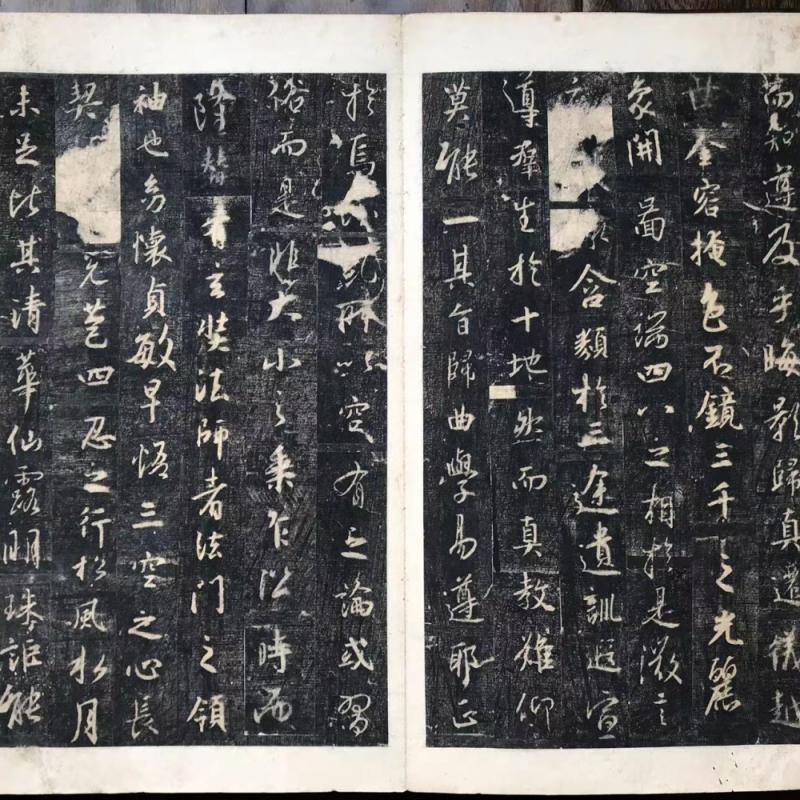 而知遵及乎晦影歸真遷儀越
世金容掩色不鏡三千之光麗
象開圖空端四八之相於是微言
含類於三途遺訓遐宣
導群生於十地然而真教難仰
莫能一其旨歸曲學易遵耶正
於焉糺所以空有之論或習
俗而是非大小之乘乍沿時而
隆替有玄奘法師者法門之領
袖也幼懷貞敏早悟三空之心長
契先苞四忍之行松風水月
未足比其清華仙露明珠詎能